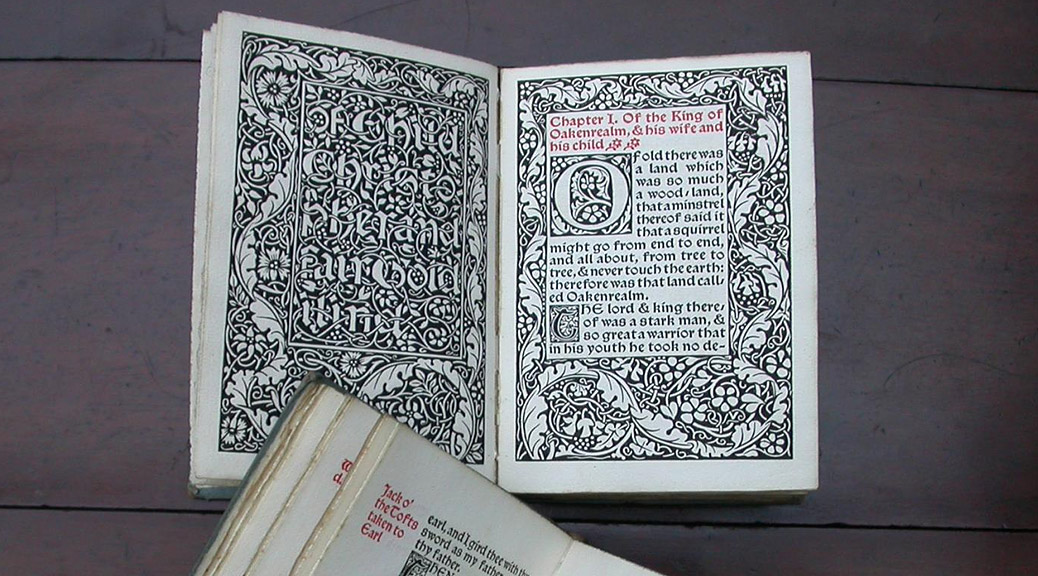 Of Child
Christo
pher and
fair Gold
ilind
Chapter I. Of the King of
Oakenrealm, & his wife and
his child
Of old there was
a land which
was so much
a wood-land,
that a minstrel
thereof said it
that a squirrel
might go from end to end,
and all about, from tree to
tree, & never touch the earth:
therefore was that land call-
ed Oakenrealm.
The lord & king there-
of was a stark man, &
so great a warrior that
in his youth he took no de-
Jack o'
the Tofts
taken to
Earl
earl, and I gird thee with
sword as my father
thy father.